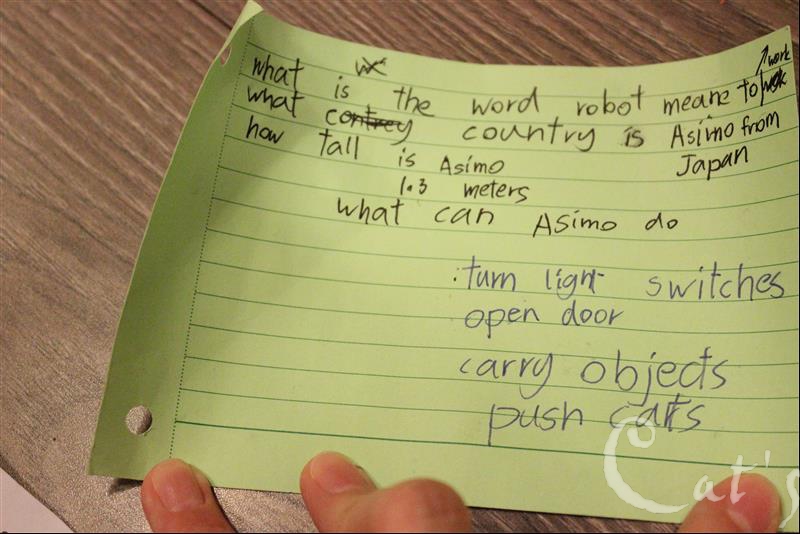 what is the word robot meane to work
what country is Asimo from
Japan
how tall is Asimo
1.3 meters
what can Asimo do
turn light switches
open door
carry objects
push carts
Cat's